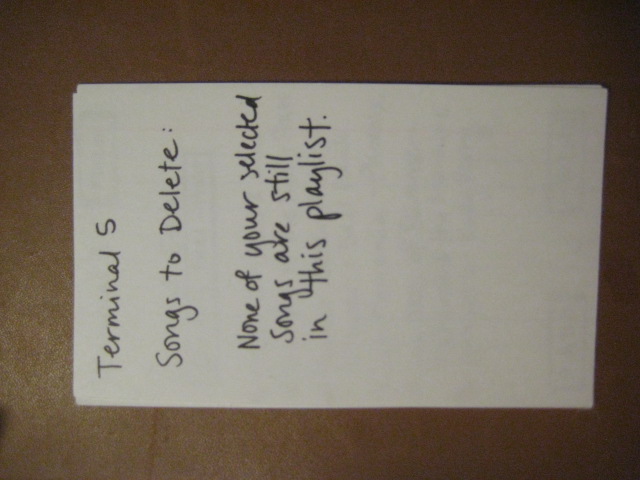 Terminal 5
Songs to Delete:
None of your selected
songs are still
in this playlist.